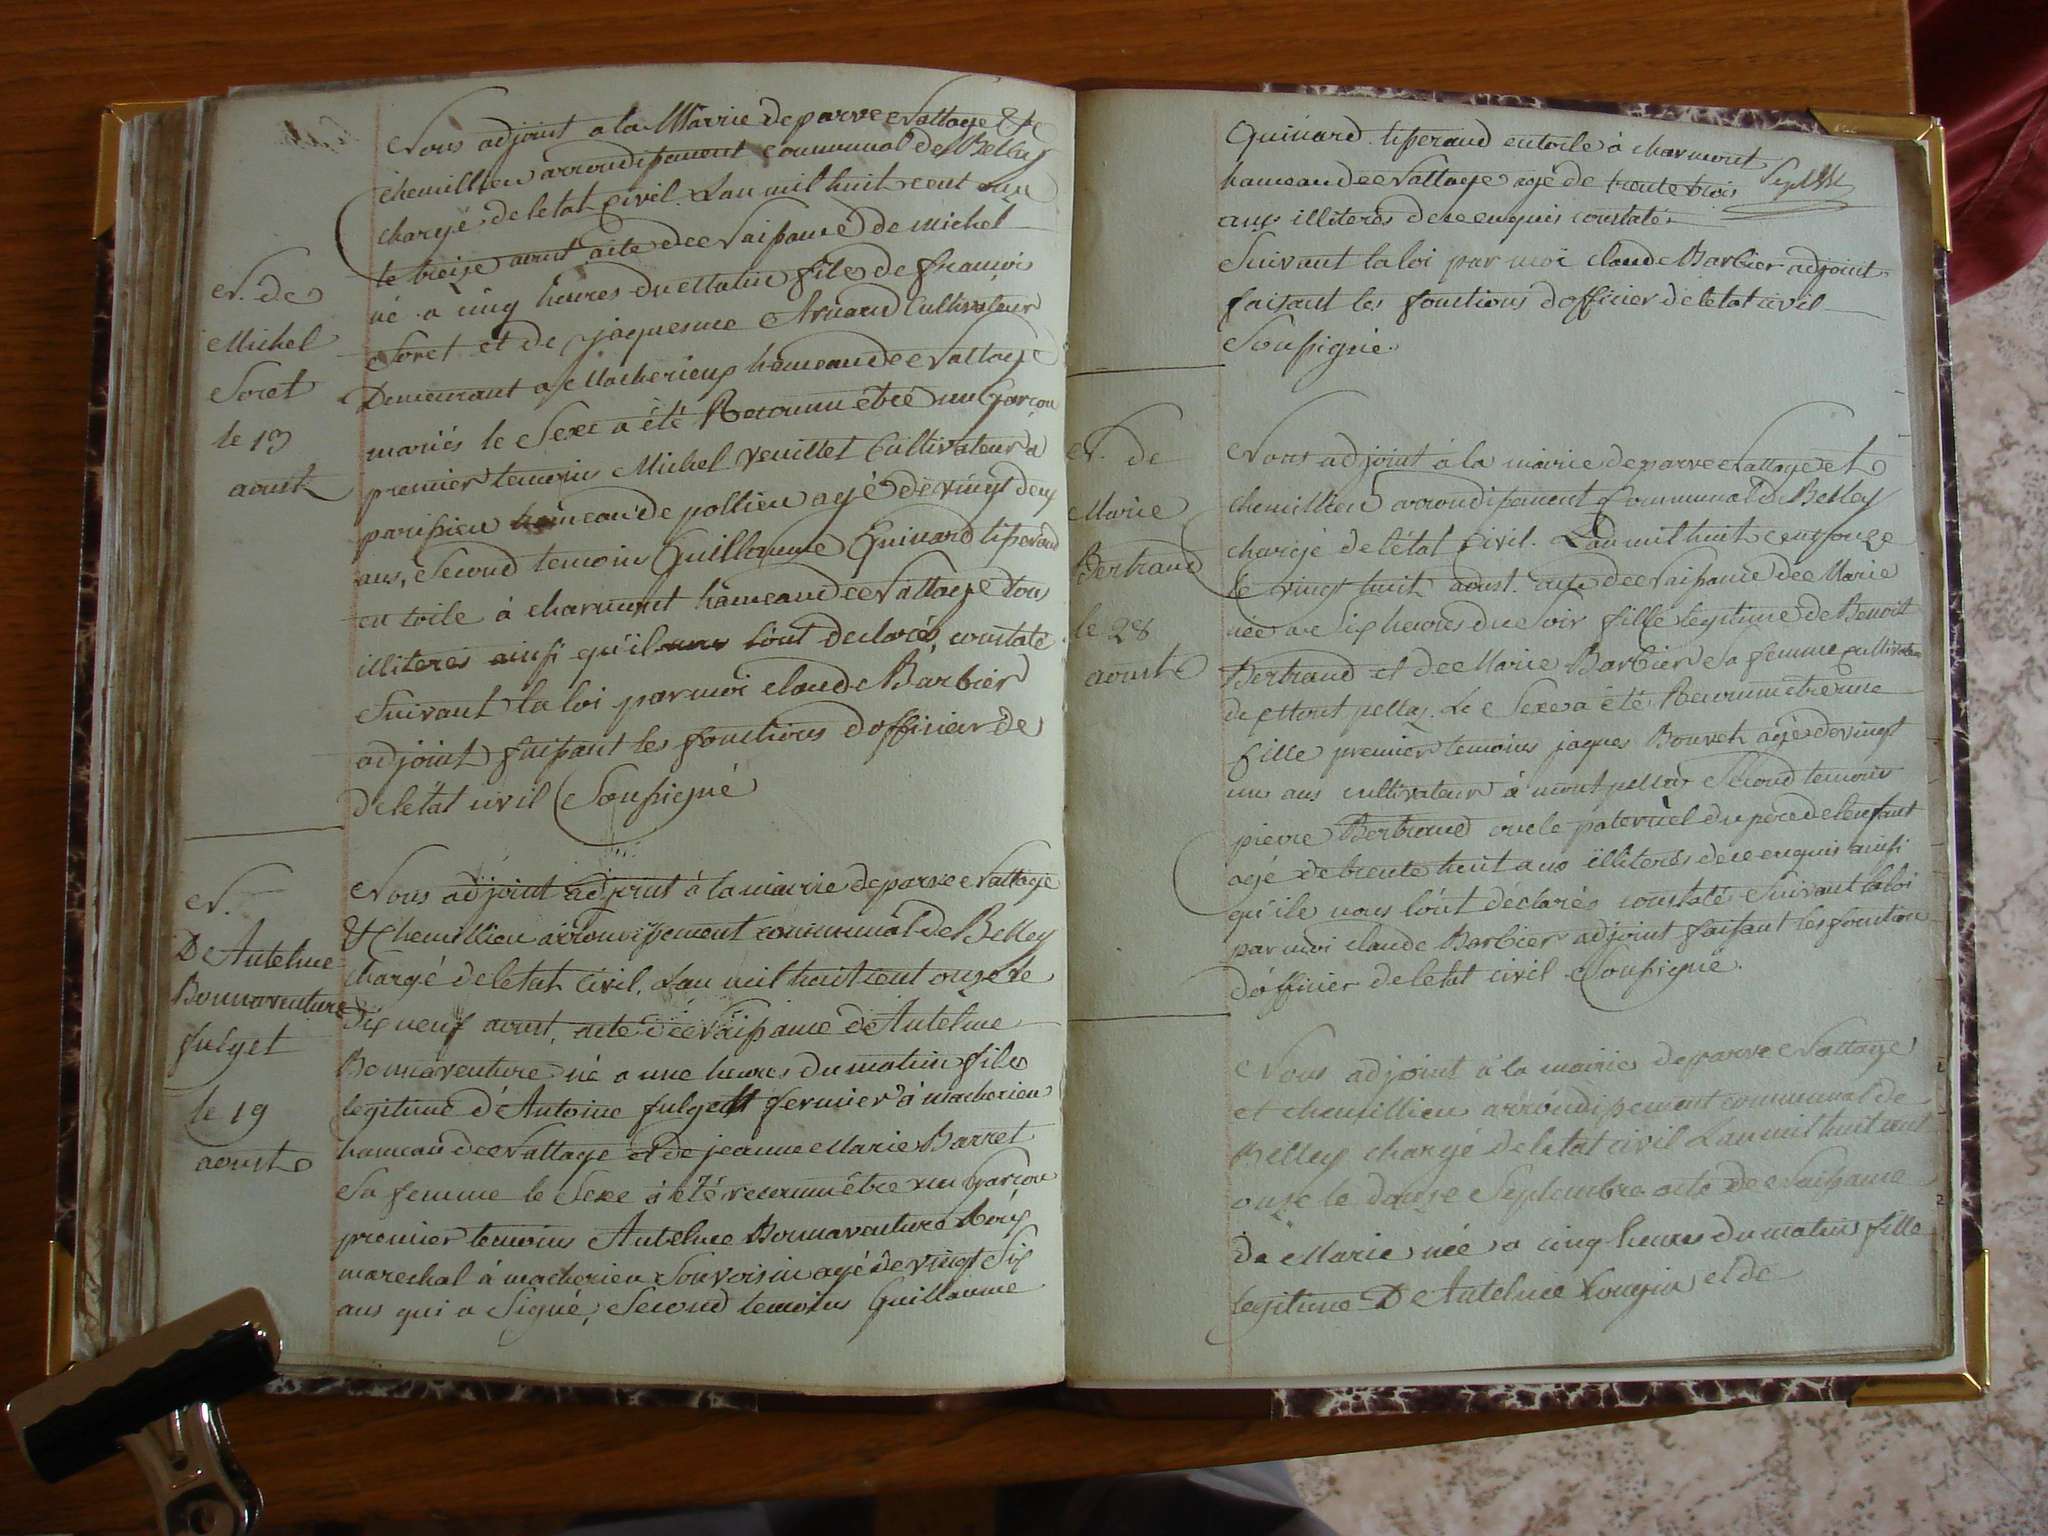 Nous adjoint a la Mairie de parve Nattage &
chemillieu arrondissement communal de Belley
chargé de letat Civil. Lan mil huit cent onze
le treize aoust acte de Naissance de Michel
né a cinq heures du Matin fils de françois
Soret et de jaquesme Arnaud Cultivateur
Demeurant a Macherieux hameau de Nattage
mariés le Sexe a été Reconnu être un Garçon
premier temoins Michel Veuillet Cultivateur a
parissieu hameau de pollieu agé de vingt deux
ans, Second temoin Guillaume Guinard tisserand
en toile à charmont hameau de Nattage tous
illiteres ainsi qu'il lont declarés, constaté
Suivant la loi par moi claude Barbier
adjoint faissant les fonctions dofficier de
de letat civil Soussigné
N. de
Michel
Soret
le 13
aoust
Nous adjoint adjoint à la mairie de parve Nattage
& Chemillieu arrondissement communal de Belley
chargé de letat Civil, Lan mil huit cent onze le
dix neuf aoust, acte de Naissance de Antelme
Bonnaventure né a une heures du matin fils
legitime d'Antoine fulget fermier à macherieu
hameau de Nattage et de jeanne Marie Barret
Sa femme le Sexe a été reconnu être un Garçon
premier temoins Antelme Bonnaventure Roux
marechal à macherieu Son voisin agé de vingt Six
ans qui a Signé, Second temoins Guillaume
N.
De Antelme
Bonnaventure
fulget
le 19
aoust
Guinard tisserand en toile à charmont
hameau de Nattage agé de trente trois
ans illiteres de ce enquis constaté
Suivant la loi par moi claude Barbier adjoint
faisant les fonctions dofficier de letat civil
Soussigné.
N. de
Marie
Bertrand
le 28
aoust
Nous adjoint à la mairie de parve Nattage et
chemillieu arrondissement Communal de Belley
chargé de létat Civil. Lan mil huit cent onze
le vingt huit aoust acte de Naissance de Marie
née a Six heures du Soir fille legitime de Benoit
Bertrand et de Marie Barbier Sa femme cultivateur
de Mont pellaz. Le Sexe a été Reconnu être une
fille premier temoins jaques Bouvet agé de vingt
un ans cultivateur à mont pellaz Second temoin
pierre Bertrand oncle paternel du père de lenfant
agé de trente huit ans illiteres de ce enquis ainsi
qu'ils nous lont déclarés constaté Suivant la loi
par moi claude Barbier adjoint faisant les fonction
d'officier de letat civil Soussigné.
Nous adjoint à la mairie de parve Nattage
et chemillieu arrondissement communal de
Belley chargé de letat civil Lan mil huit cent
onze le douze Septembre acte de Naissance
de Marie née a cinq heures du matin fille
legitime D'Antelme Longin et de